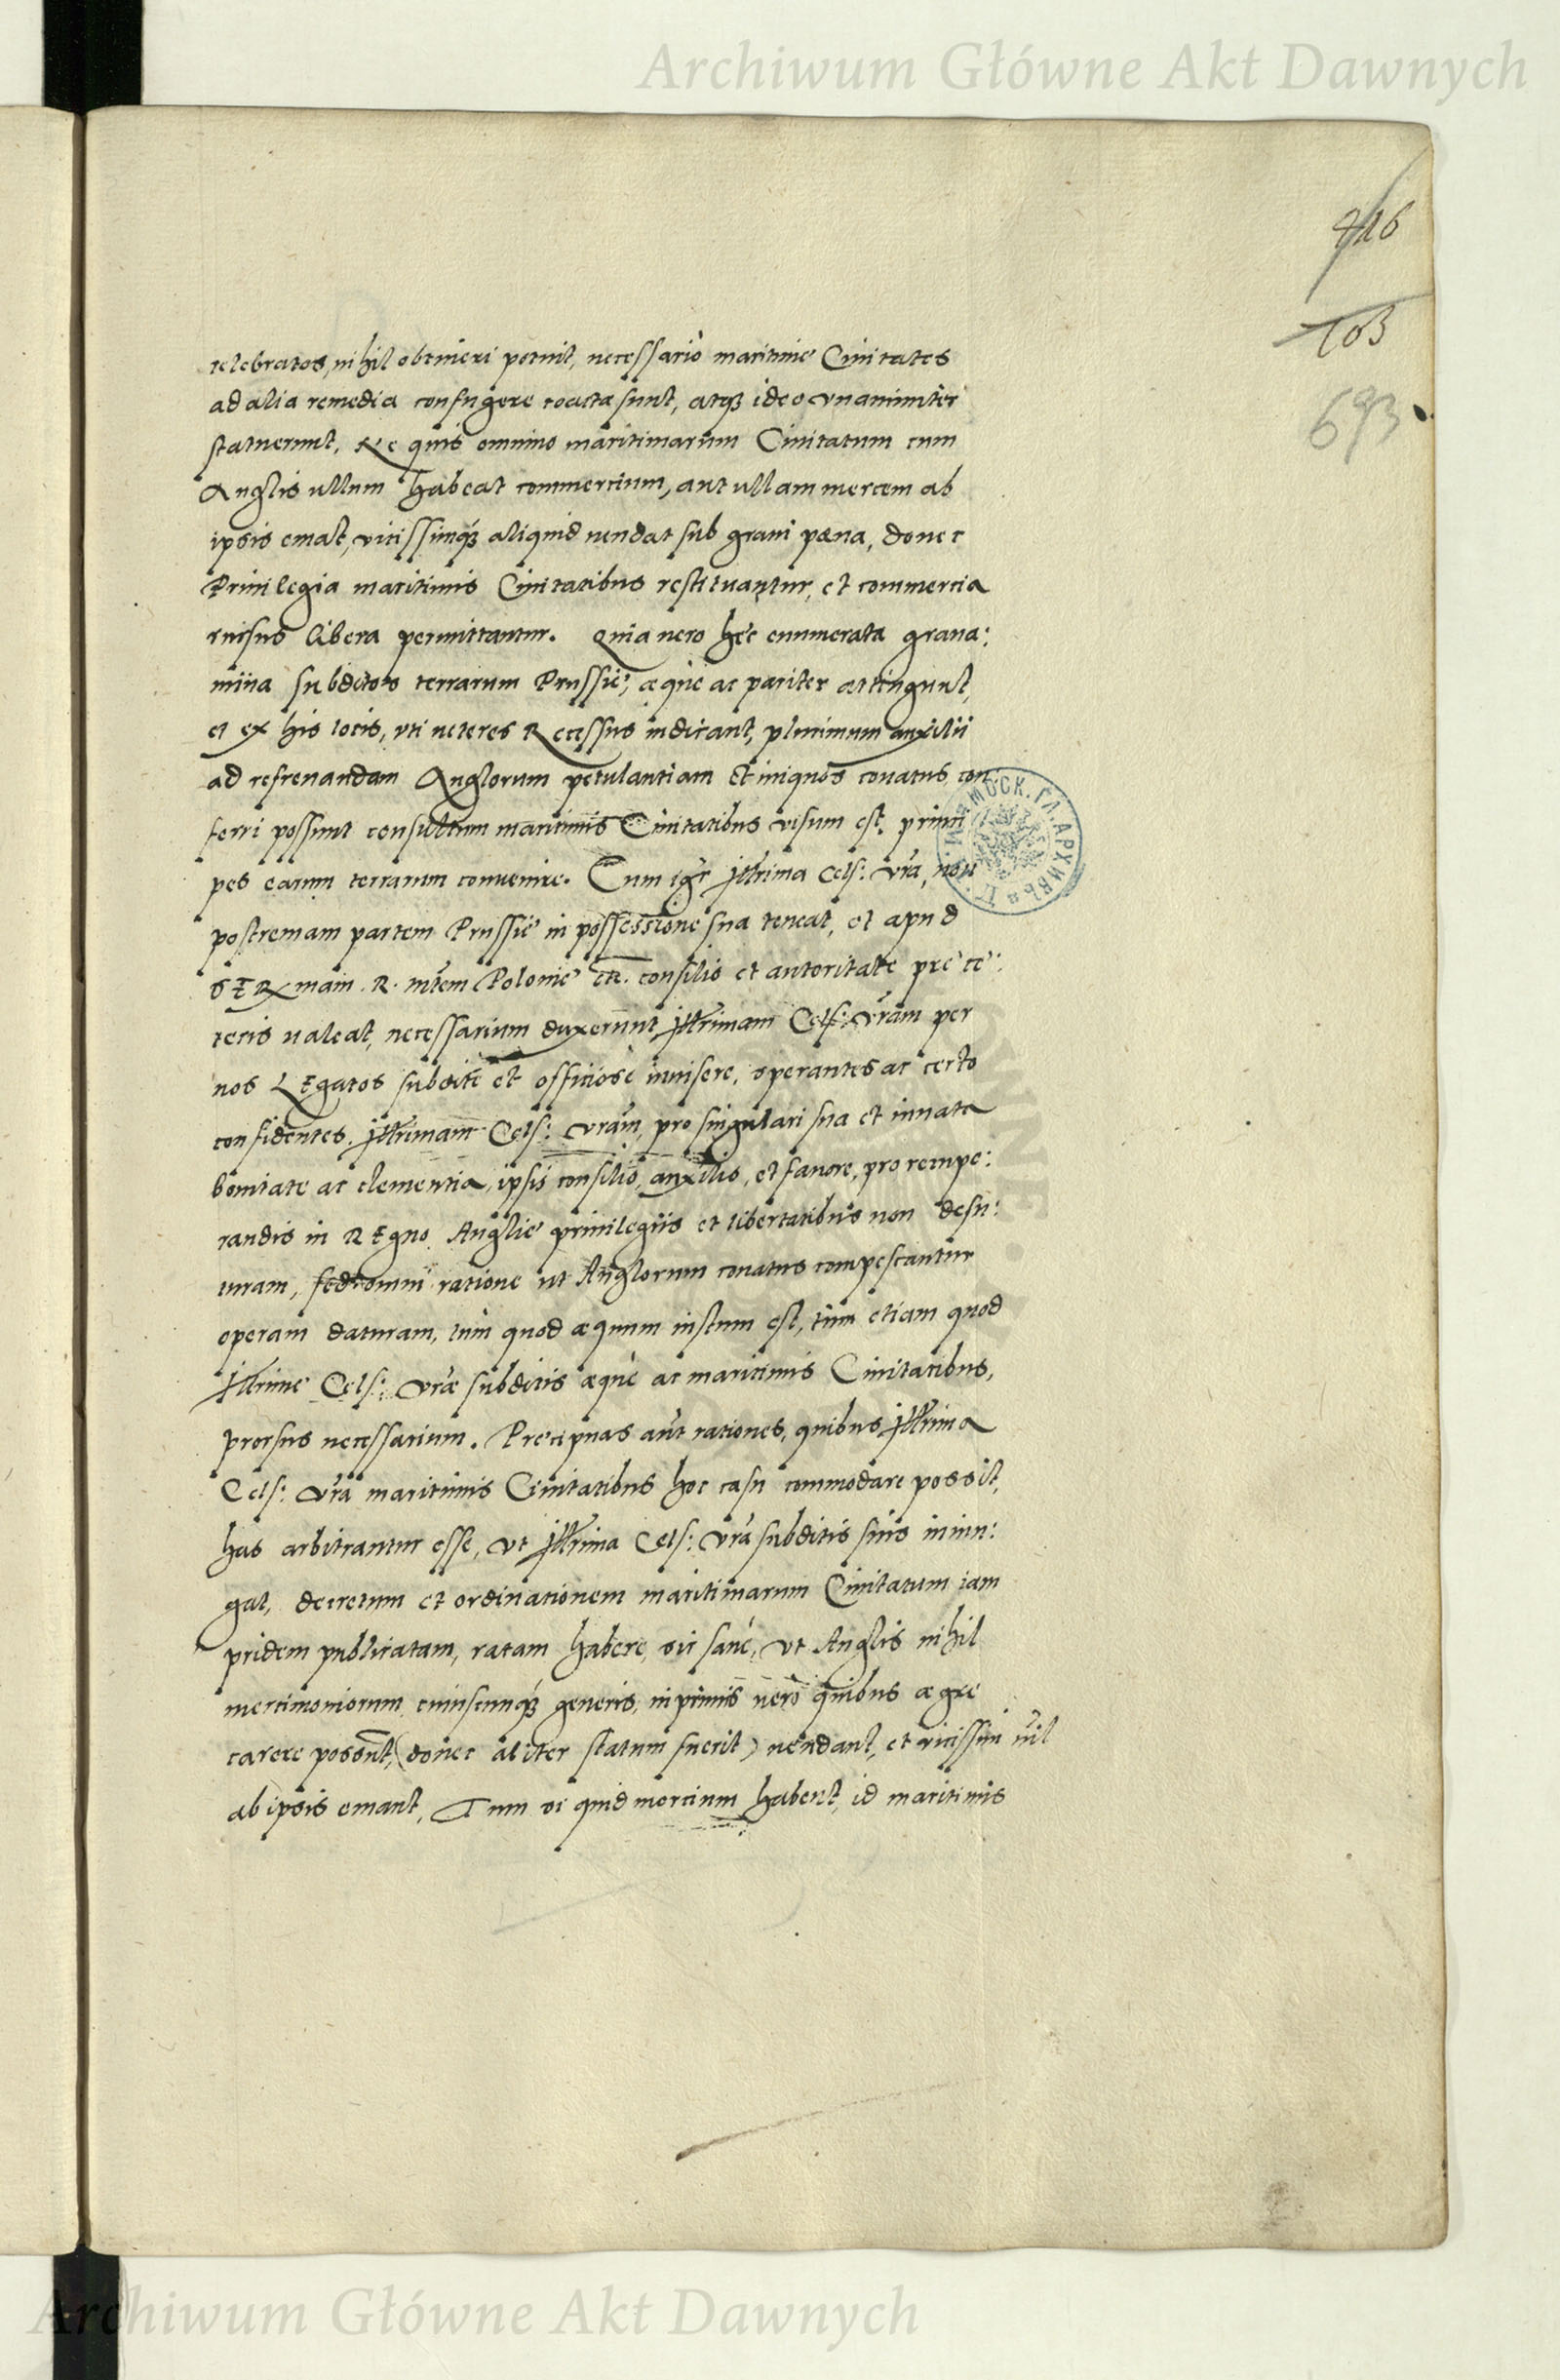 Archiwum Główne Akt Dawnych
416
103
693
celebratos, nihil obtineri potuit, necessariò maritimè Ciuitates
ad alia remedia confugere coactæ sunt, atqꝫ ideo vnanimiter
statuerunt, Ne quis omnino maritimarum Ciuitatum cum
Anglis ullum habeat commercium, aut ullam mercem ab
ipsis emat, vicissimqꝫ aliquid uendat sub graui pœna, donec
Priuilegia maritimis Ciuitatibus restituantur, et commercia
rursus libera permittantur. Quia uero hęc enumerata graua:
mina subditos terrarum Prussię, æquè ac pariter attingunt,
et ex his locis, vti ueteres Recessus indicant, plurimum auxilii
ad refrenandam Anglorum petulantiam et iniquos conatus, con:
ferri possunt consultum maritimis Ciuitatibus visum est, prin
pes earum terrarum conuenire. Cum igr̃ Illr̃ima Cels: vr̃a, non
postremam partem Prussię in possessione sua teneat, et apud
SERxmam R. mtem Polonię etc. consilio et autoritate prę cę:
teris ualeat, necessarium duxerunt, Illr̃imam Cels: vr̃am per
nos LEgatos subditè et officiosè inuisere, sperantes ac certo
confidentes. Illr̃imam Cels: vr̃am, pro singulari sua et innata
bonitate ac clementia, ipsis consilio, auxilio, et fauore, pro recupe:
randis in REgno Anglię priuilegiis et libertatibus non desu:
turam, sed omni ratione ut Anglorum conatus compescantur
operam daturam, tùm quod æquum iustum est, tùm etiam quod
Illr̃imę Cels: vr̃æ subditis æquè ac maritimis Ciuitatibus,
prorsus necessarium. Pręcipuas aut̃ rationes, quibus Illr̃ima
Cels: vr̃a maritimis Ciuitatibus hoc casu commodare possit,
has arbitrantur esse, vt Illr̃ima Cels: vr̃a subditis suis iniun:
gat, decretum et ordinationem maritimarum Ciuitatum iam
pridem publicatam, ratam habere, sic sanè, vt Anglis nihil
mercimoniorum cuiuscunqꝫ generis, inprimis uerò quibus ægre
carere possunt, (donec aliter statum fuerit) uendant, et vicissim nil
ab ipsis emant, Tum si quid mercium habent, id maritimis
Archiwum Główne Akt Dawnych